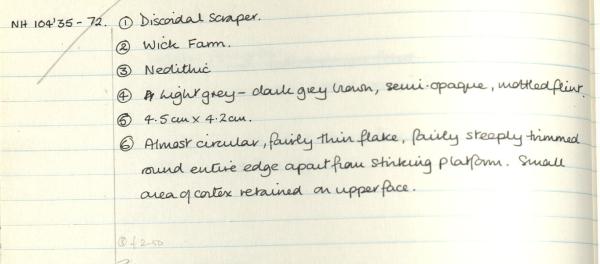 NH 104'35-72. ① Discoidal Scraper.
② Wick Farm.
③ Neolithic
④ Light grey - dark grey brown, semi-opaque, mottled flint.
⑤ 4.5cm x 4.2cm.
⑥ Almost circular, fairly thin flake, fairly steeply trimmed
round entire edge apart from striking platform. Small
area of cortex retained on upper face.
⑧ £2-50